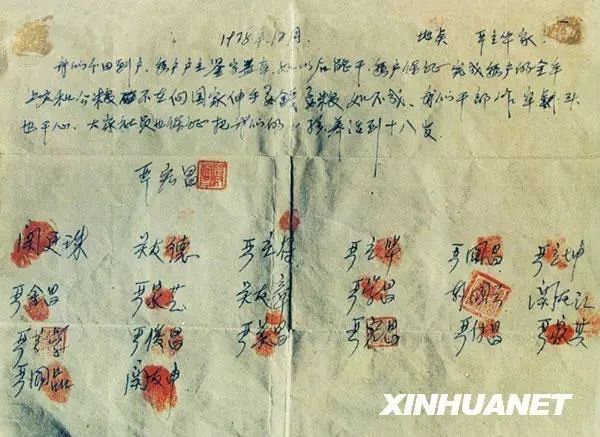 1978年12月 地点 严立华家
我们分田到户,每户户主签字盖章,如以后能干,每户保证完成每户的全年
上交和公粮 不在向国家伸手要钱要粮,如不成,我们干部作牢剎头
也干心,大家社员也保证把我们的小孩养活到十八岁。
严宏昌
关廷珠 关友德 严立符 严立华 严国昌 严立坤
严金昌 严家芝 关友章 严学昌 韩国云 关友江
严立学 严俊昌 严美昌 严宏昌 严付昌 严家其
严国品 关友申
XINHUANET